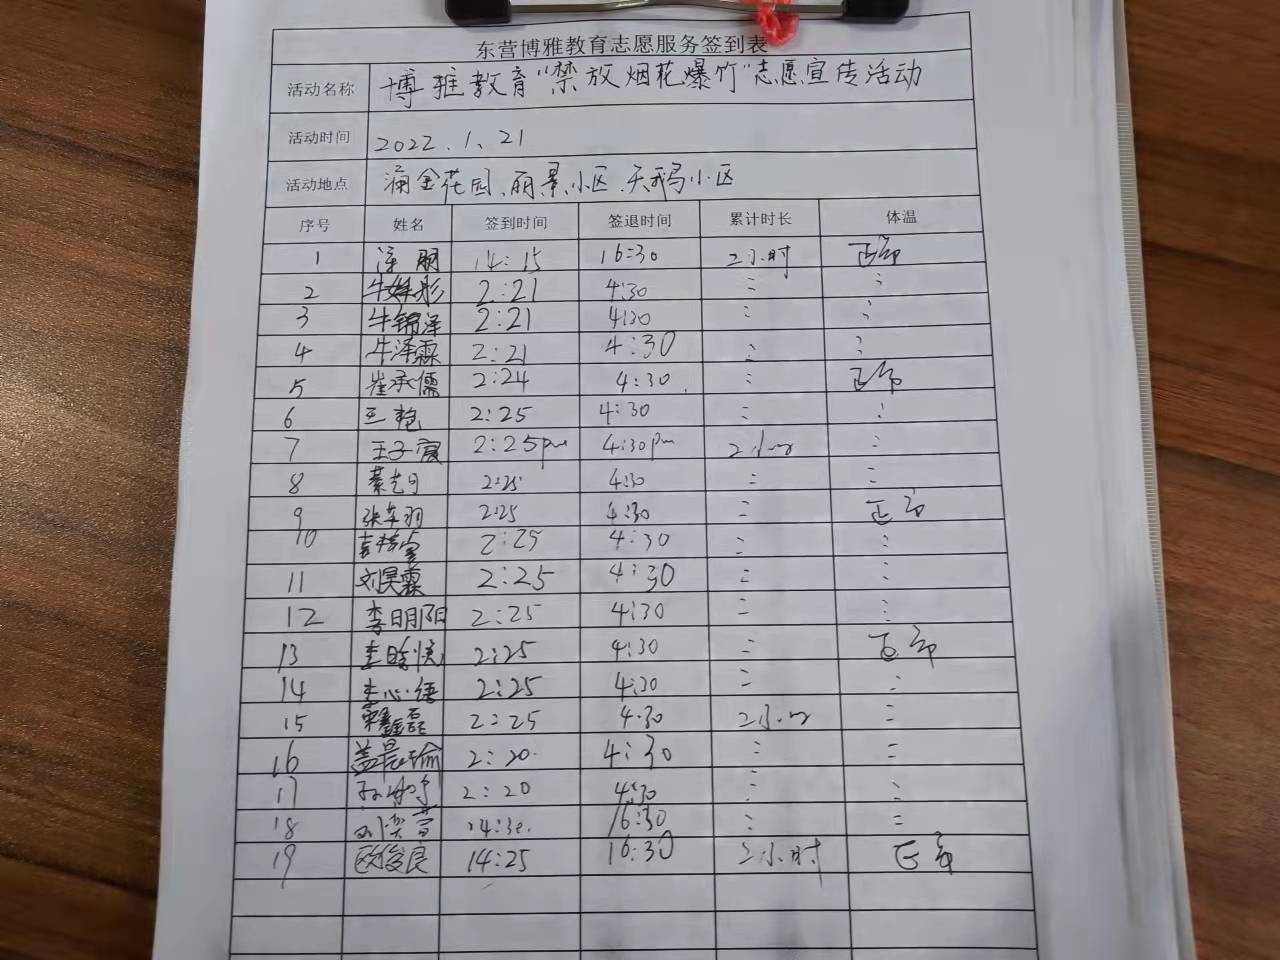 东营博雅教育志愿服务签到表
活动名称 博雅教育“禁放烟花爆竹”志愿宣传活动
活动时间 2022.1、21
活动地点 涌金花园、丽景小区、天鹅小区
序号 姓名 签到时间 签退时间 累计时长 体温
1 14:15 16:30 2小时 正常
2 牛 彤 2:21 4:30 :: :
3 牛锦泽 2:21 4:30 : :
4 牛泽霖 2:21 4:30 : :
5 崔承儒 2:24 4:30. : 正常
6 王艳 2:25 4:30 : :
7 王子霞 2:25pm 4:30pm 2小时 :
8 2:25 4:30 : :
9 2:25 4:30 : 正常
10 2:25 4:30 : :
11 刘昊霖 2:25 4:30 : :
12 李明阳 2:25 4:30 : :
13 李 2:25 4:30 : 正常
14 李心 2:25 4:30 : :
15 鑫磊 2:25 4:30 2小时 :
16 盖晨瑜 2:20. 4:30 : :
17 2:20 4:30 : :
18 14:30. 16:30 : :
19 欧俊良 14:25 16:30 2小时 正常